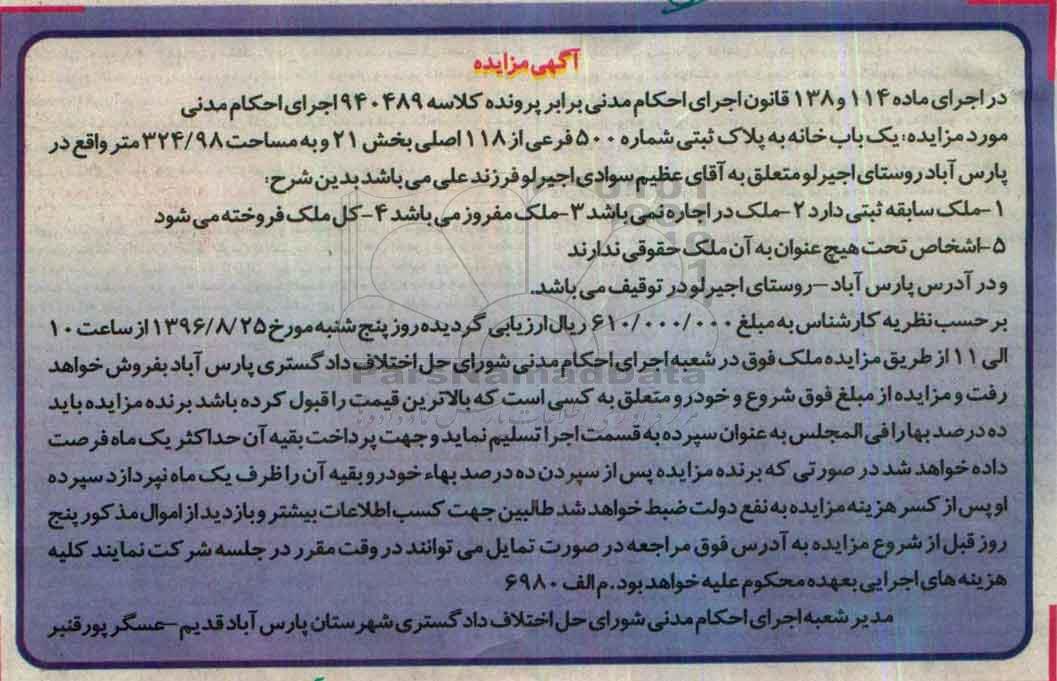 آگهی مزایده
در اجرای ماده ۱۱۴ و ۱۳۸ قانون اجرای احکام مدنی برابر پرونده کلاسه ۹۴۰۴۸۹ اجرای احکام مدنی
مورد مزایده: یک باب خانه به پلاک ثبتی شماره ۵۰۰ فرعی از ۱۱۸ اصلی بخش ۲۱ و به مساحت ۳۲۴/۹۸ متر واقع در
پارس آباد روستای اجیرلو متعلق به آقای عظیم سوادی اجیرلو فرزند علی می باشد بدین شرح:
۱-ملک سابقه ثبتی دارد ۲-ملک در اجاره نمی باشد ۳-ملک مفروز می باشد ۴-کل ملک فروخته می شود
۵-اشخاص تحت هیچ عنوان به آن ملک حقوقی ندارند
و در آدرس پارس آباد –روستای اجیرلو در توقیف می باشد.
بر حسب نظریه کارشناس به مبلغ ۶۱۰/۰۰۰/۰۰۰ ریال ارزیابی گردیده روز پنج شنبه مورخ ۱۳۹۶/۸/۲۵ از ساعت ۱۰
الی ۱۱ از طریق مزایده ملک فوق در شعبه اجرای احکام مدنی شورای حل اختلاف دادگستری پارس آباد بفروش خواهد
رفت و مزایده از مبلغ فوق شروع و خودرو متعلق به کسی است که بالاترین قیمت را قبول کرده باشد برنده مزایده باید
ده درصد بها را فی المجلس به عنوان سپرده به قسمت اجرا تسلیم نماید و جهت پرداخت بقیه آن حداکثر یک ماه فرصت
داده خواهد شد در صورتی که برنده مزایده پس از سپردن ده درصد بهاء خودرو بقیه آن را ظرف یک ماه نپردازد سپرده
او پس از کسر هزینه مزایده به نفع دولت ضبط خواهد شد طالبین جهت کسب اطلاعات بیشتر و بازدید از اموال مذکور پنج
روز قبل از شروع مزایده به آدرس فوق مراجعه در صورت تمایل می توانند در وقت مقرر در جلسه شرکت نمایند کلیه
هزینه های اجرایی بعهده محکوم علیه خواهد بود. م الف ۶۹۸۰
مدیر شعبه اجرای احکام مدنی شورای حل اختلاف دادگستری شهرستان پارس آباد قدیم –عسگر پور قنبر
ParsNamadData